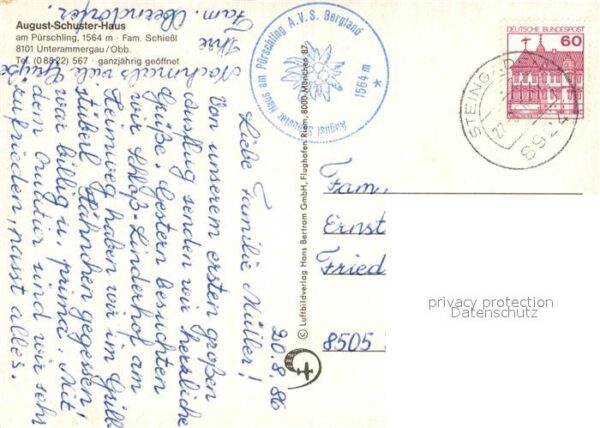 August-Schuster-Haus
am Pürschling, 1564 m · Fam. Schießl
8101 Unterammergau/Obb.
Tel. (08822) 567 · ganzjährig geöffnet
August Schuster Haus am Pürschling A.V.S. Bergland
1564 m
20.8.86
Liebe Familie Müller!
Von unserem ersten großen
Ausflug senden wir herzliche
Grüße. Gestern besuchten
wir Schloß-Linderhof am
Heimweg haben wir im Grill
stüberl Hähnchen gegessen!
war billig u. prima. Mit
dem Quartier sind wir sehr
zufrieden, passt alles.
Nochmals viele Grüße
Ihre
Fam. Oberndorfer.
© Luftbildverlag Hans Bertram GmbH, Flughafen Riem, 8000 München 87
DEUTSCHE BUNDESPOST
60
STEINGADEN
8924
Fam.
Ernst
Fried
8505
privacy protection
Datenschutz